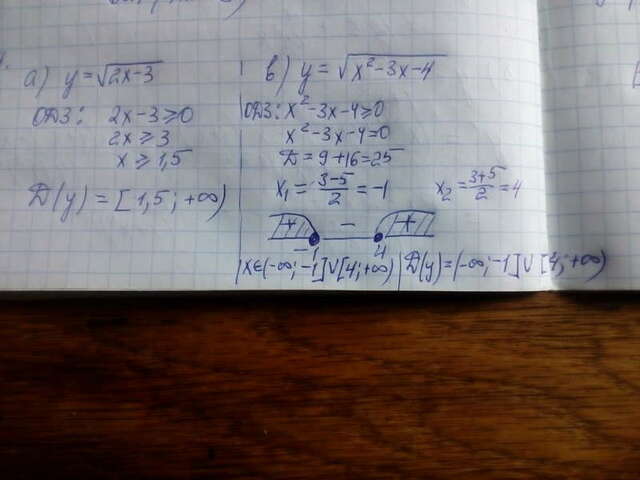 а) y=√2x-3
ОДЗ: 2x-3≥0
2x≥3
x≥1,5
D(y)=[1,5;+∞)
в) y=√x²-3x-4
ОДЗ: x²-3x-4≥0
x²-3x-4=0
D=9+16=25
x₁=3-5/2=-1 x₂=3+5/2=4
+ - +
-1 4
x∈(-∞;-1]∪[4;+∞) D(y)=(-∞;-1]∪[4;+∞)